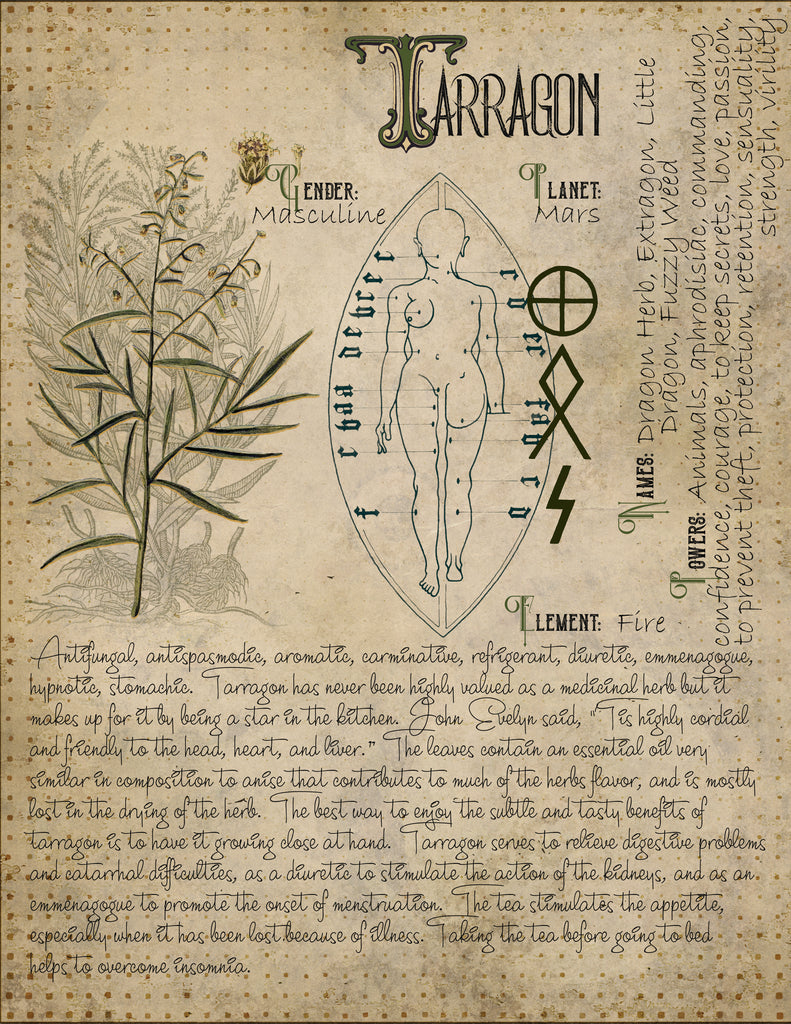 TARRAGON
GENDER:
Masculine
PLANET:
Mars
NAMES: Dragon Herb, Extragon, Little
Dragon, Fuzzy Weed
POWERS: Animals, aphrodisiac, commanding,
confidence, courage, to keep secrets, love, passion,
to prevent theft, protection, retention, sensuality,
strength, virility
ELEMENT: Fire
Antifungal, antispasmodic, aromatic, carminative, refrigerant, diuretic, emmenagogue,
hypnotic, stomachic. Tarragon has never been highly valued as a medicinal herb but it
makes up for it by being a star in the kitchen. John Evelyn said, "Tis highly cordial
and friendly to the head, heart, and liver." The leaves contain an essential oil very
similar in composition to anise that contributes to much of the herbs flavor, and is mostly
lost in the drying of the herb. The best way to enjoy the subtle and tasty benefits of
tarragon is to have it growing close at hand. Tarragon serves to relieve digestive problems
and catarrhal difficulties, as a diuretic to stimulate the action of the kidneys, and as an
emmenagogue to promote the onset of menstruation. The tea stimulates the appetite,
especially when it has been lost because of illness. Taking the tea before going to bed
helps to overcome insomnia.